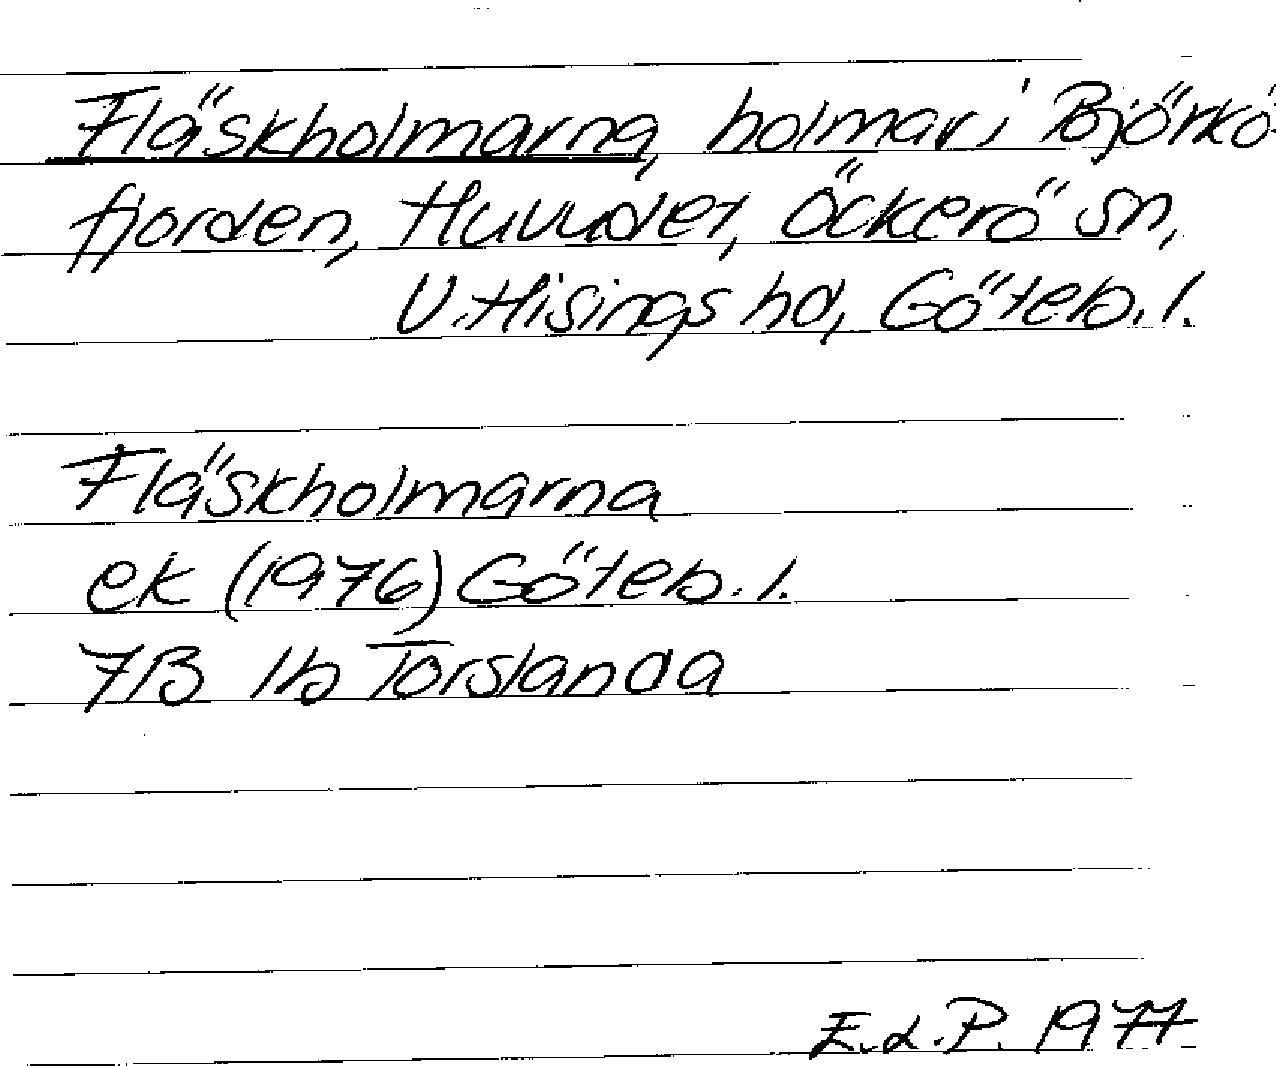 Fläskholmarna, holmar i Björkö-
fjorden, Huvudet, Öckerö sn,
V. Hisings hd, Göteb. l.
Fläskholmarna
ek (1976) Göteb. l.
7B 1b Torslanda
E.d.P. 1977